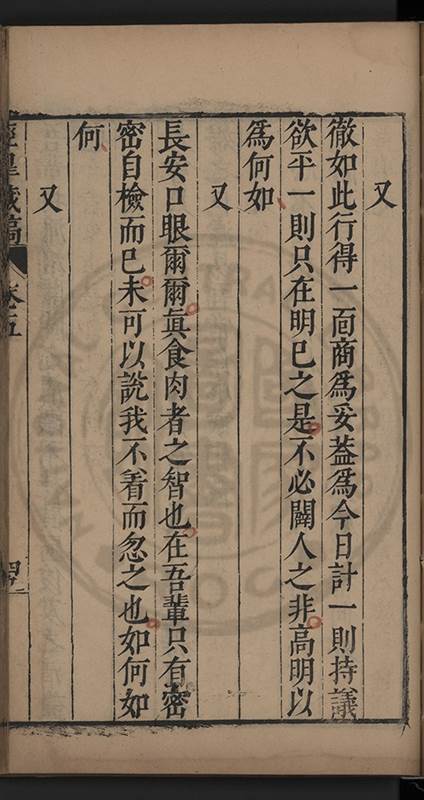 又
徹如此行得一面商爲妥葢爲今日計一則持議
欲平一則只在明已之是不必闢人之非高明以
爲何如
又
長安口眼爾爾眞食肉者之智也在吾輩只有密
密自檢而已未可以說我不着而忽之也如何如
何
又
涇臯藏稿
卷五